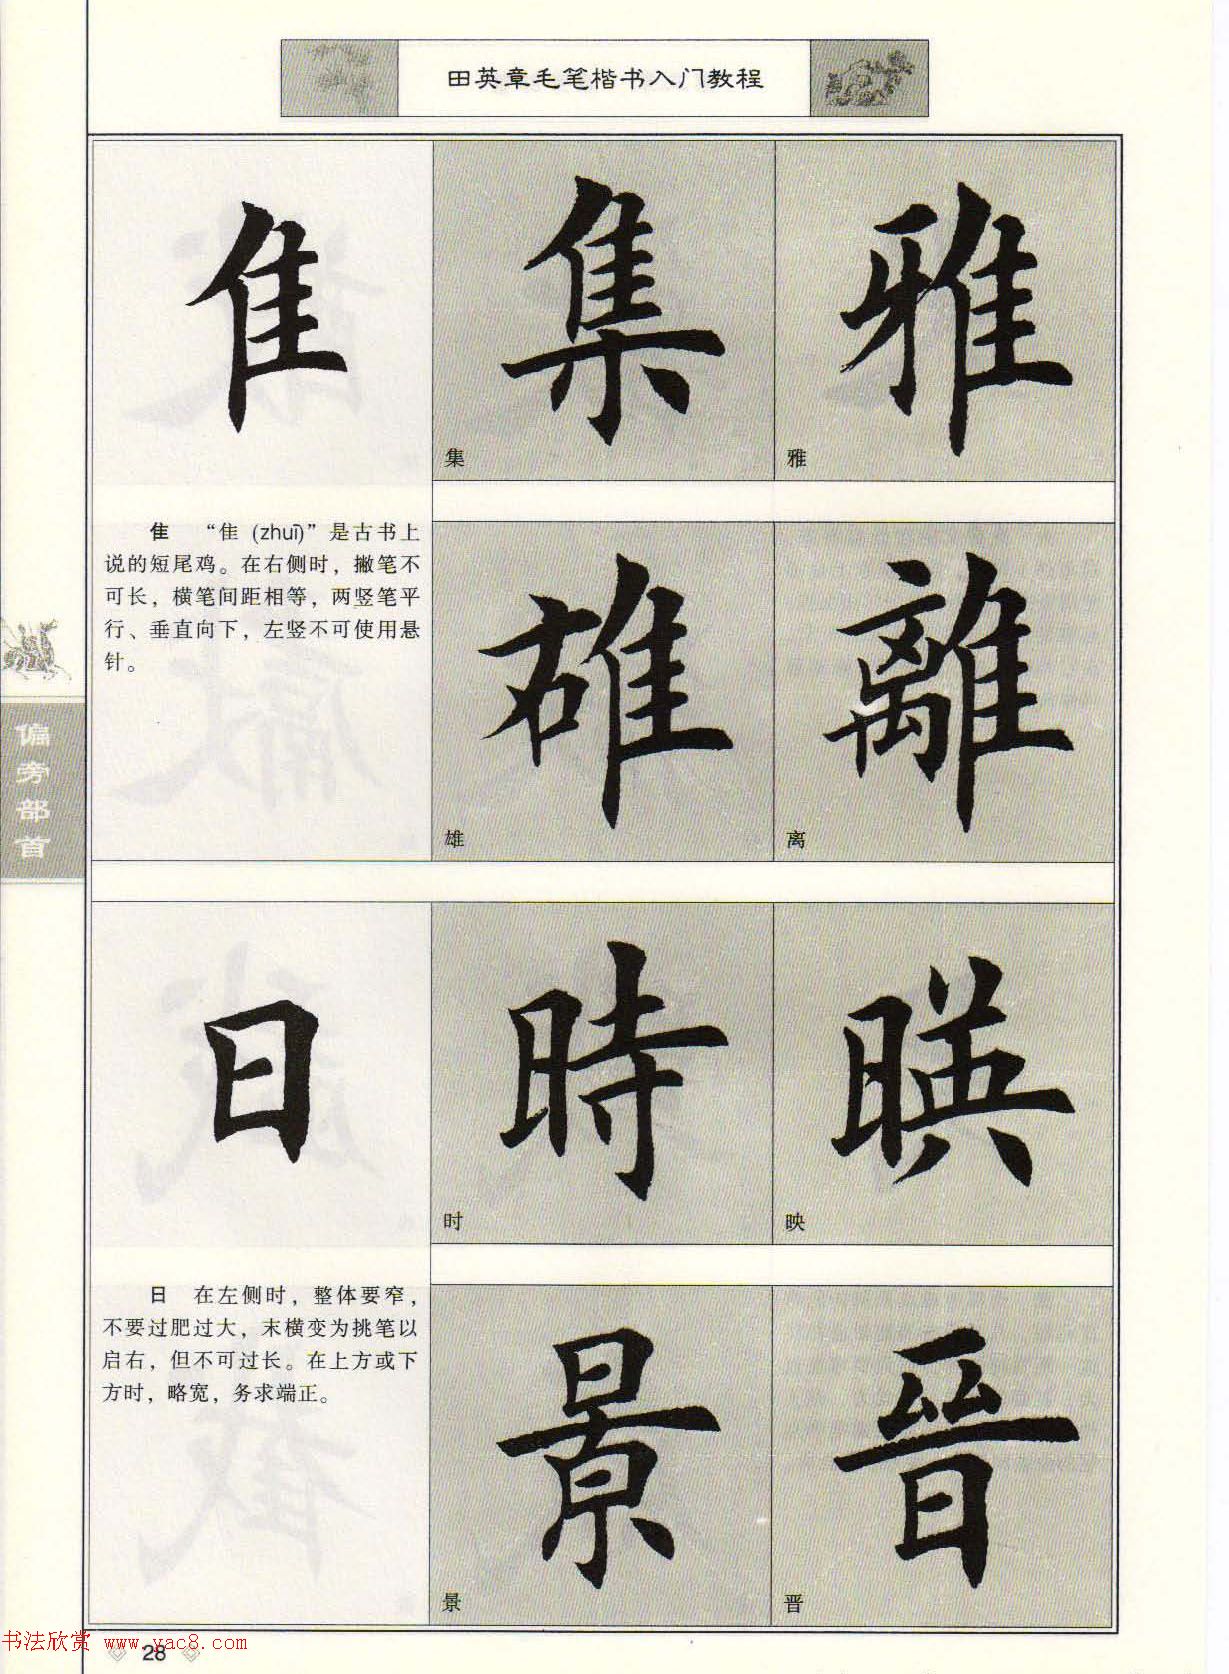 田英章毛笔楷书入门教程
隹
集
雅
集
雅
隹 “隹 (zhuī)”是古书上
说的短尾鸡。在右侧时，撇笔不
可长，横笔间距相等，两竖笔平
行、垂直向下，左竖不可使用悬
针。
雄
離
雄
离
偏旁部首
日
時
暎
时
映
日 在左侧时，整体要窄，
不要过肥过大，末横变为挑笔以
启右，但不可过长。在上方或下
方时，略宽，务求端正。
景
晉
景
晋
书法欣赏 www.yac8.com
28